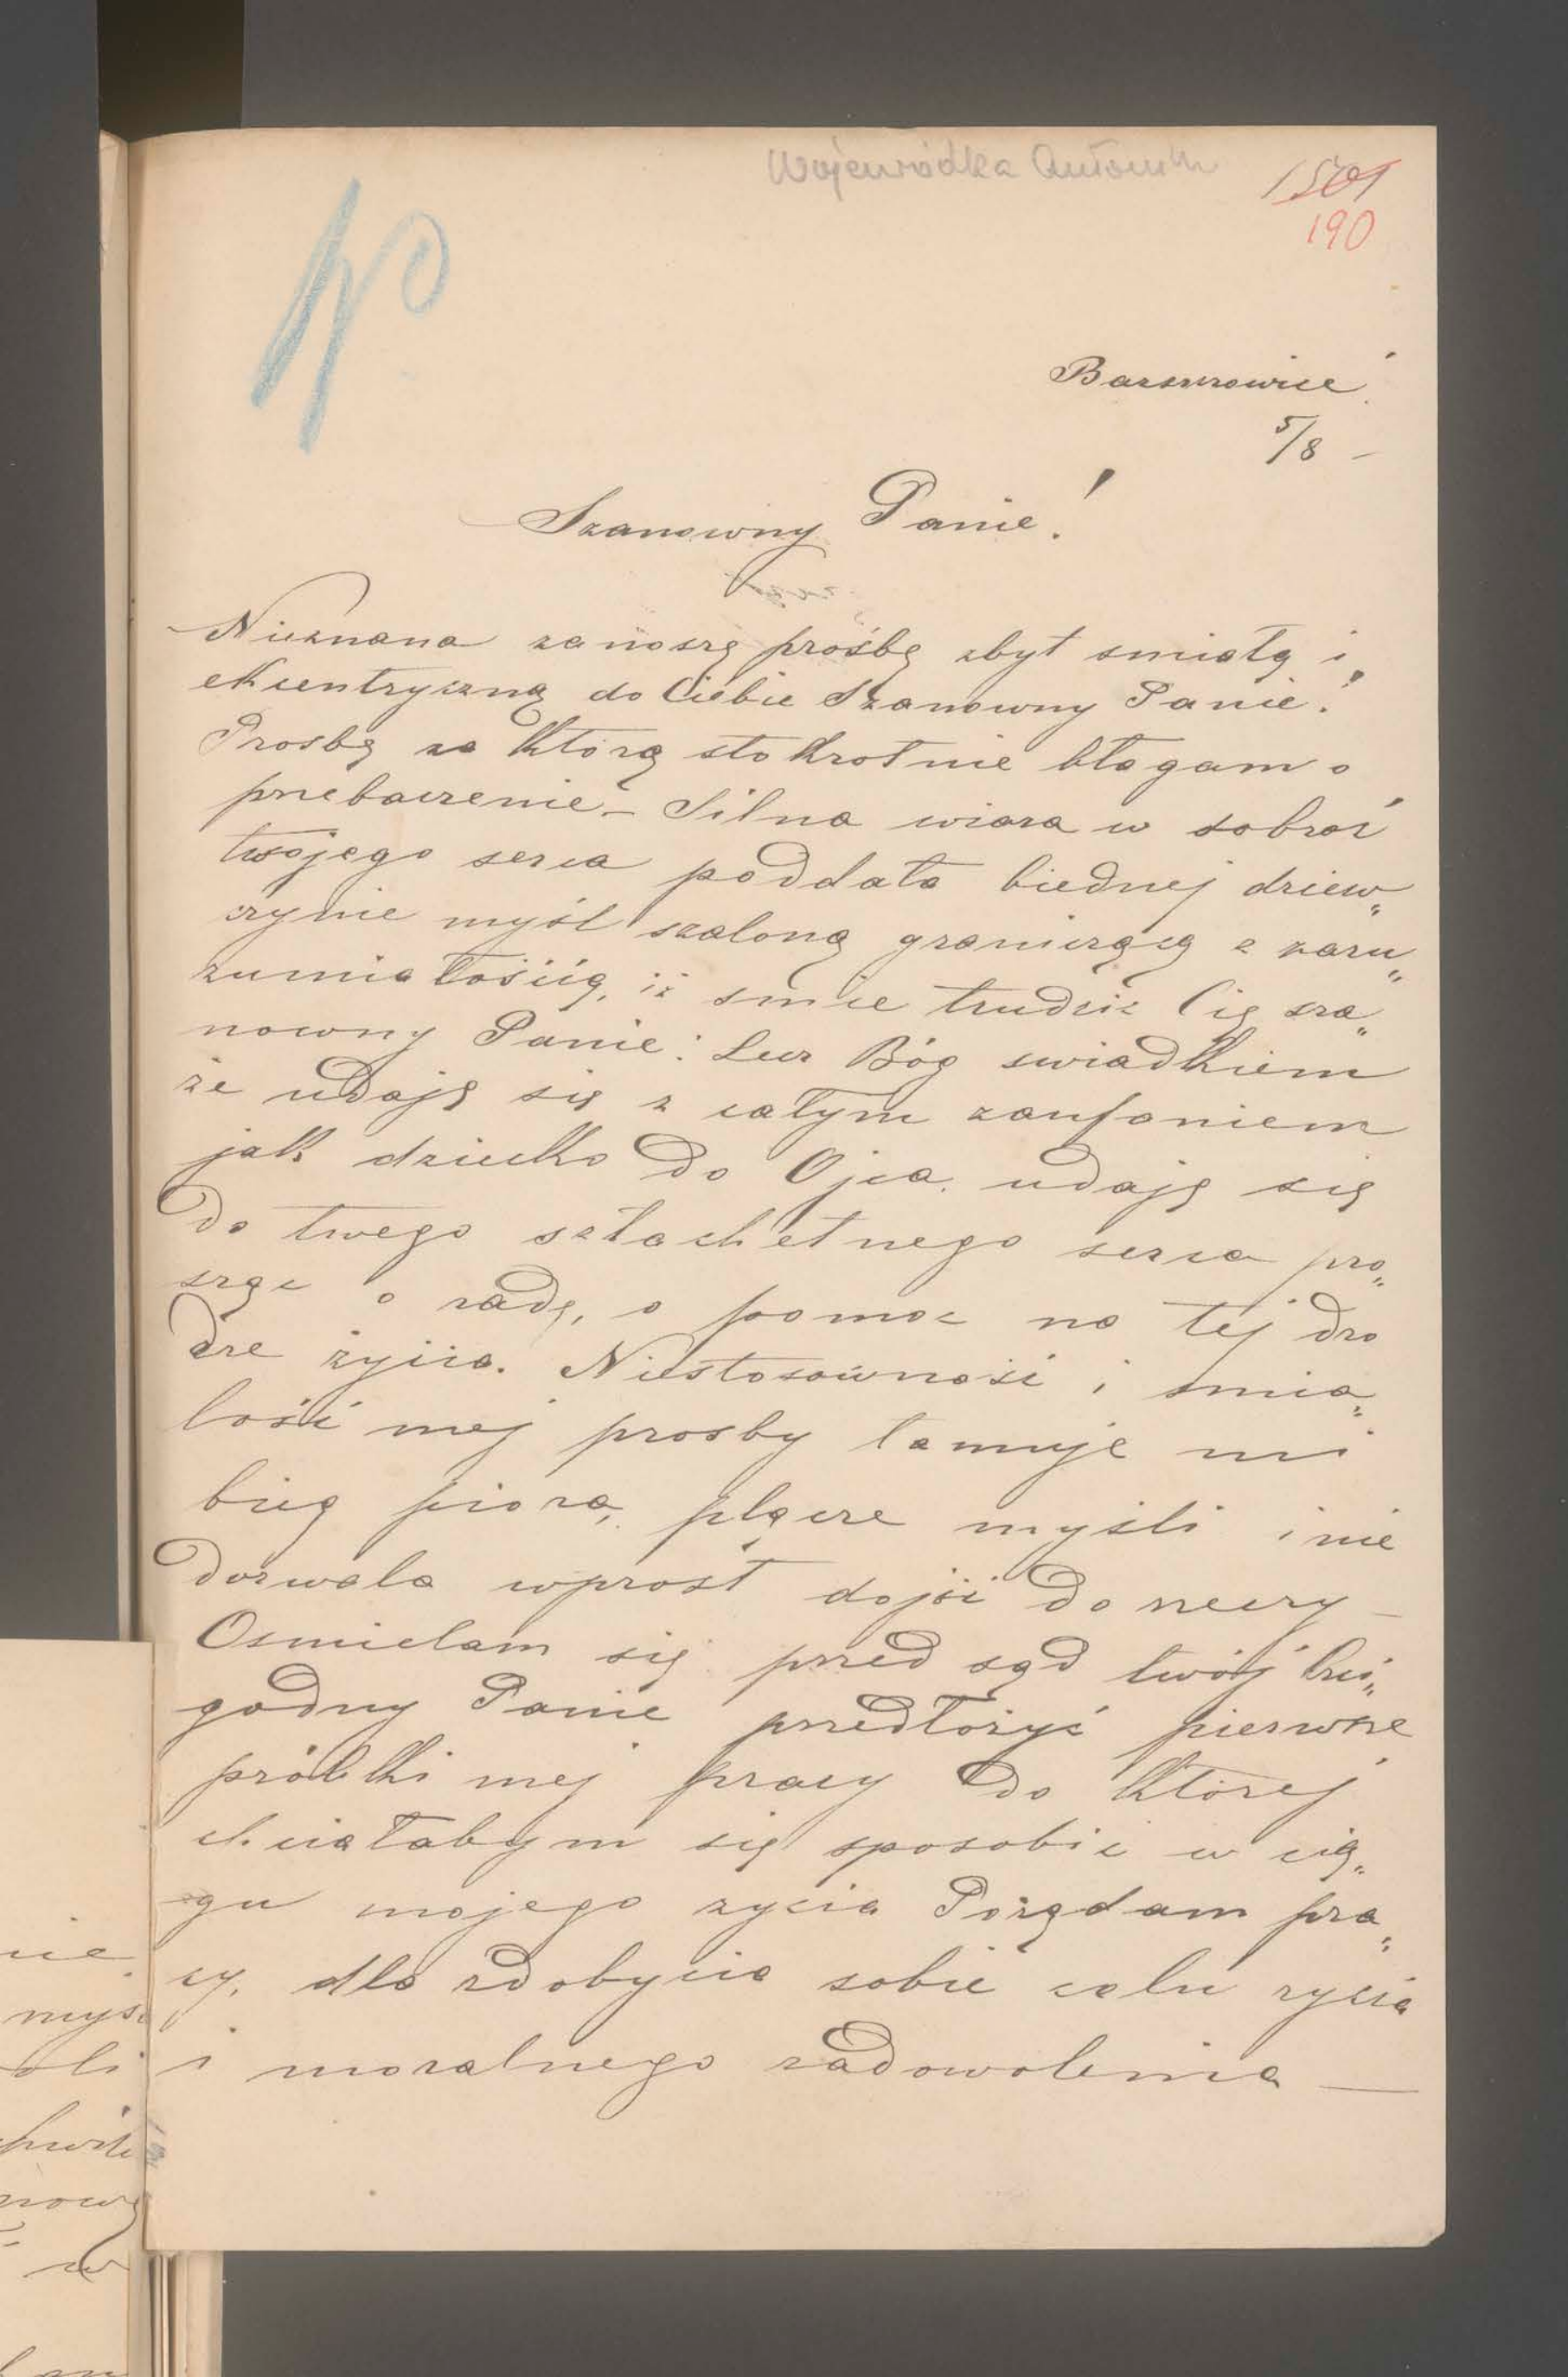 Wojewódka Antonina
1501
190
No
5/8 –
Szanowny Panie!
Nieznana zanoszę prośbę zbyt smiałą i
ekcentryczną do Ciebie Szanowny Panie!
Prosbę za którą stokrotnie błagam o
przebaczenie – Silna wiara w dobroć
twojego serca poddała biednej dziew„
czynie myśl szaloną graniczącą z zaru„
zumiałością, iż smie trudzić Cię sza„
nowny Panie: Lecz Bóg swiadkiem
że udaję się z całym zaufaniem
jak dziecko do Ojca. udaję się
do twego szlachetnego serca pro„
sząc o radę, o pomoc na tej dro
dze życia. Niestosowność i smia„
lość mej prosby tamuje mi
bieg piora, plącze myśli i nie
dozwala wprost dojść do rzeczy –
Osmielam się przed sąd twój Czci„
godny Panie przedłożyć pierwsze
próbki mej pracy do której
chciałabym się sposobić w cią„
gu mojego zycia Pożądam pra„
cy, dla zdobycia sobie celu zycia
i moralnego zadowolenia —